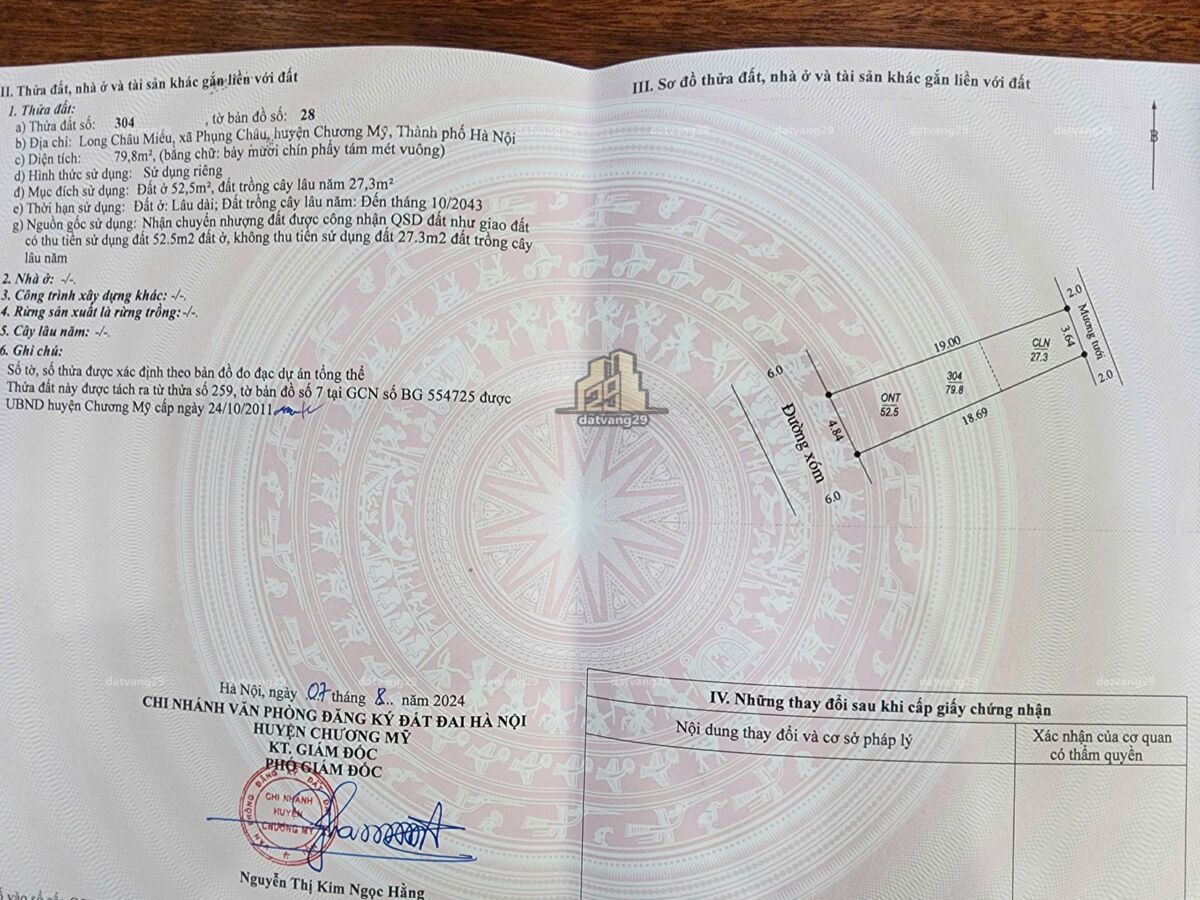 II. Thửa đất, nhà ở và tài sản khác gắn liền với đất
1. Thửa đất:
a) Thửa đất số: 304 , tờ bản đồ số: 28
b) Địa chỉ: Long Châu Miếu, xã Phụng Châu, huyện Chương Mỹ, Thành phố Hà Nội
c) Diện tích: 79,8m², (bằng chữ: bảy mươi chín phẩy tám mét vuông)
d) Hình thức sử dụng: Sử dụng riêng
đ) Mục đích sử dụng: Đất ở 52,5m², đất trồng cây lâu năm 27,3m²
e) Thời hạn sử dụng: Đất ở: Lâu dài; Đất trồng cây lâu năm: Đến tháng 10/2043
g) Nguồn gốc sử dụng: Nhận chuyển nhượng đất được công nhận QSD đất như giao đất
có thu tiền sử dụng đất 52.5m2 đất ở, không thu tiền sử dụng đất 27.3m2 đất trồng cây
lâu năm
2. Nhà ở: -/-.
3. Công trình xây dựng khác: -/-.
4. Rừng sản xuất là rừng trồng:-/-.
5. Cây lâu năm: -/-.
6. Ghi chú:
Số tờ, số thửa được xác định theo bản đồ đo đạc dự án tổng thể
Thửa đất này được tách ra từ thửa số 259, tờ bản đồ số 7 tại GCN số BG 554725 được
UBND huyện Chương Mỹ cấp ngày 24/10/2011
Hà Nội, ngày 07 tháng 8.. năm 2024
CHI NHÁNH VĂN PHÒNG ĐĂNG KÝ ĐẤT ĐAI HÀ NỘI
HUYỆN CHƯƠNG MỸ
KT. GIÁM ĐỐC
PHÓ GIÁM ĐỐC
CHI NHÁNH
HUYỆN
CHƯƠNG MỸ
Nguyễn Thị Kim Ngọc Hằng
III. Sơ đồ thửa đất, nhà ở và tài sản khác gắn liền với đất
B
2.0
Mương tưới
3.64
2.0
19.00
CLN
27.3
304
79.8
ONT
52.5
18.69
6.0
4.84
Đường xóm
6.0
datvang29
datvang29
datvang29
datvang29
datvang29
datvang29
datvang29
datvang29
datvang29
IV. Những thay đổi sau khi cấp giấy chứng nhận
Nội dung thay đổi và cơ sở pháp lý
Xác nhận của cơ quan
có thẩm quyền